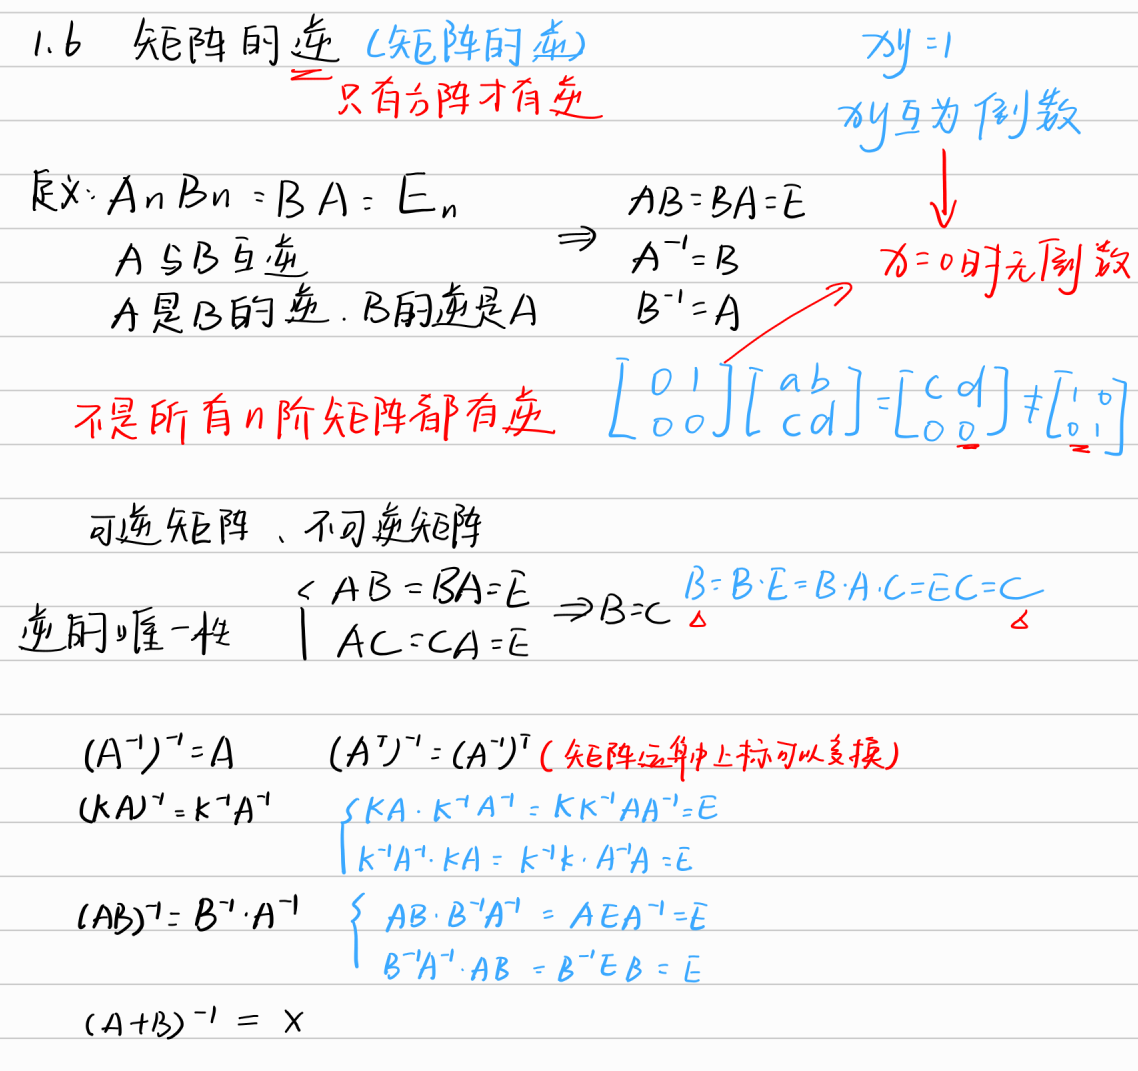 1.6 矩阵的逆 (矩阵的逆)
只有方阵才有逆
xy=1
xy互为倒数
x=0时无倒数
定义: AnBn=BA=En
A与B互逆
A是B的逆.B的逆是A
⇒ AB=BA=E
A⁻¹=B
B⁻¹=A
不是所有n阶矩阵都有逆
[0 1; 0 0][a b; c d]=[c d; 0 0]≠[1 0; 0 1]
可逆矩阵、不可逆矩阵
逆的唯一性 { AB=BA=E
AC=CA=E
⇒B=C B=B·E=B·A·C=EC=C
(A⁻¹)⁻¹=A (Aᵀ)⁻¹=(A⁻¹)ᵀ(矩阵运算中上标可以交换)
(KA)⁻¹=K⁻¹A⁻¹ { KA·K⁻¹A⁻¹=KK⁻¹AA⁻¹=E
K⁻¹A⁻¹·KA=K⁻¹k·A⁻¹A=E
(AB)⁻¹=B⁻¹·A⁻¹ { AB·B⁻¹A⁻¹=AEA⁻¹=E
B⁻¹A⁻¹·AB=B⁻¹EB=E
(A+B)⁻¹=×